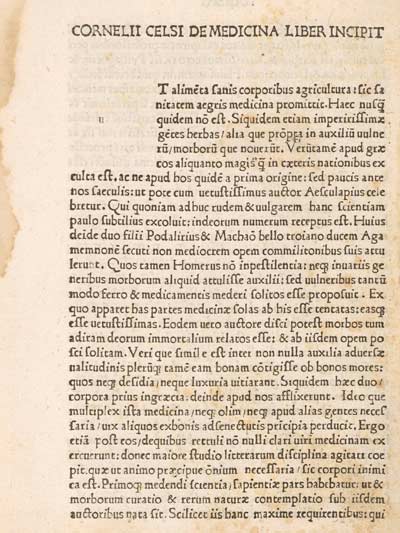 CORNELII CELSI DE MEDICINA LIBER INCIPIT
u
T alimēta sanis corporibus agricultura: sic sa
nitatem aegris medicina promittit. Haec nusq̄
quidem nō est. Siquidem etiam imperitissimæ
gētes herbas/alia que prōpta in auxiliū vulne
rū/morborū que nouerūt. Verūtamē apud græ
cos aliquanto magis q̄ in cæteris nationibus ex
culta est. ac ne apud hos quidē a prima origine: sed paucis ante
nos saeculis: ut pote cum uetustissimus auctor Aesculapius cele
bretur. Qui quoniam adhuc rudem & uulgarem hanc scientiam
paulo subtilius excoluit: indeorum numerum receptus est. Huius
deide duo filii Podalirius & Machaō bello troiano ducem Aga
memnonē secuti non mediocrem opem commilitonibus suis attu
lerunt. Quos tamen Homerus nō inpestilentia: neq; inuariis ge
neribus morborum aliquid attulisse auxilii: sed vulneribus tantū
modo ferro & medicamentis mederi solitos esse proposuit. Ex
quo apparet has partes medicinæ solas ab his esse tentatas: easq;
esse uetustissimas. Eodem uero auctore disci potest morbos tum
ad iram deorum immortalium relatos esse: & ab iisdem opem po
sci solitam. Veri que simile est inter non nulla auxilia aduersæ
ualitudinis plerūq; tamē eam bonam cōtigisse ob bonos mores:
quos neq; desidia/neque luxuria uitiarant. Siquidem hæc duo/
corpora prius ingræcia. deinde apud nos afflixerunt. Ideo que
multiplex ista medicina/neq; olim/neq; apud alias gentes neces
saria/uix aliquos exbonis adsenectutis pricipia perducit. Ergo
etiā post eos/dequibus retuli nō nulli clari uiri medicinam ex
ercuerunt: donec maiore studio litterarum disciplina agitari coe
pit. quæ ut animo præcipue ōnium necessaria/sic corpori inimi
ca est. Primoq; medendi scientia/sapientiæ pars habebatur: ut &
morborum curatio & rerum naturæ contemplatio sub iisdem
auctoribus nata sit. Scilicet iis hanc maxime requirentibus: qui